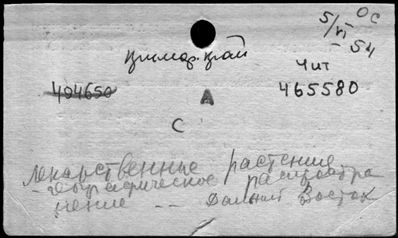 ОС
5/VI - 54
Примор. край
Чит
404650
465580
А
С
Лекарственные растения
- географическое распростра
нение -- Дальний Восток